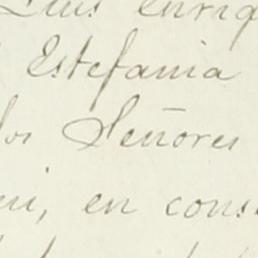 Luis enriq
Estefania
los Señores
en cons